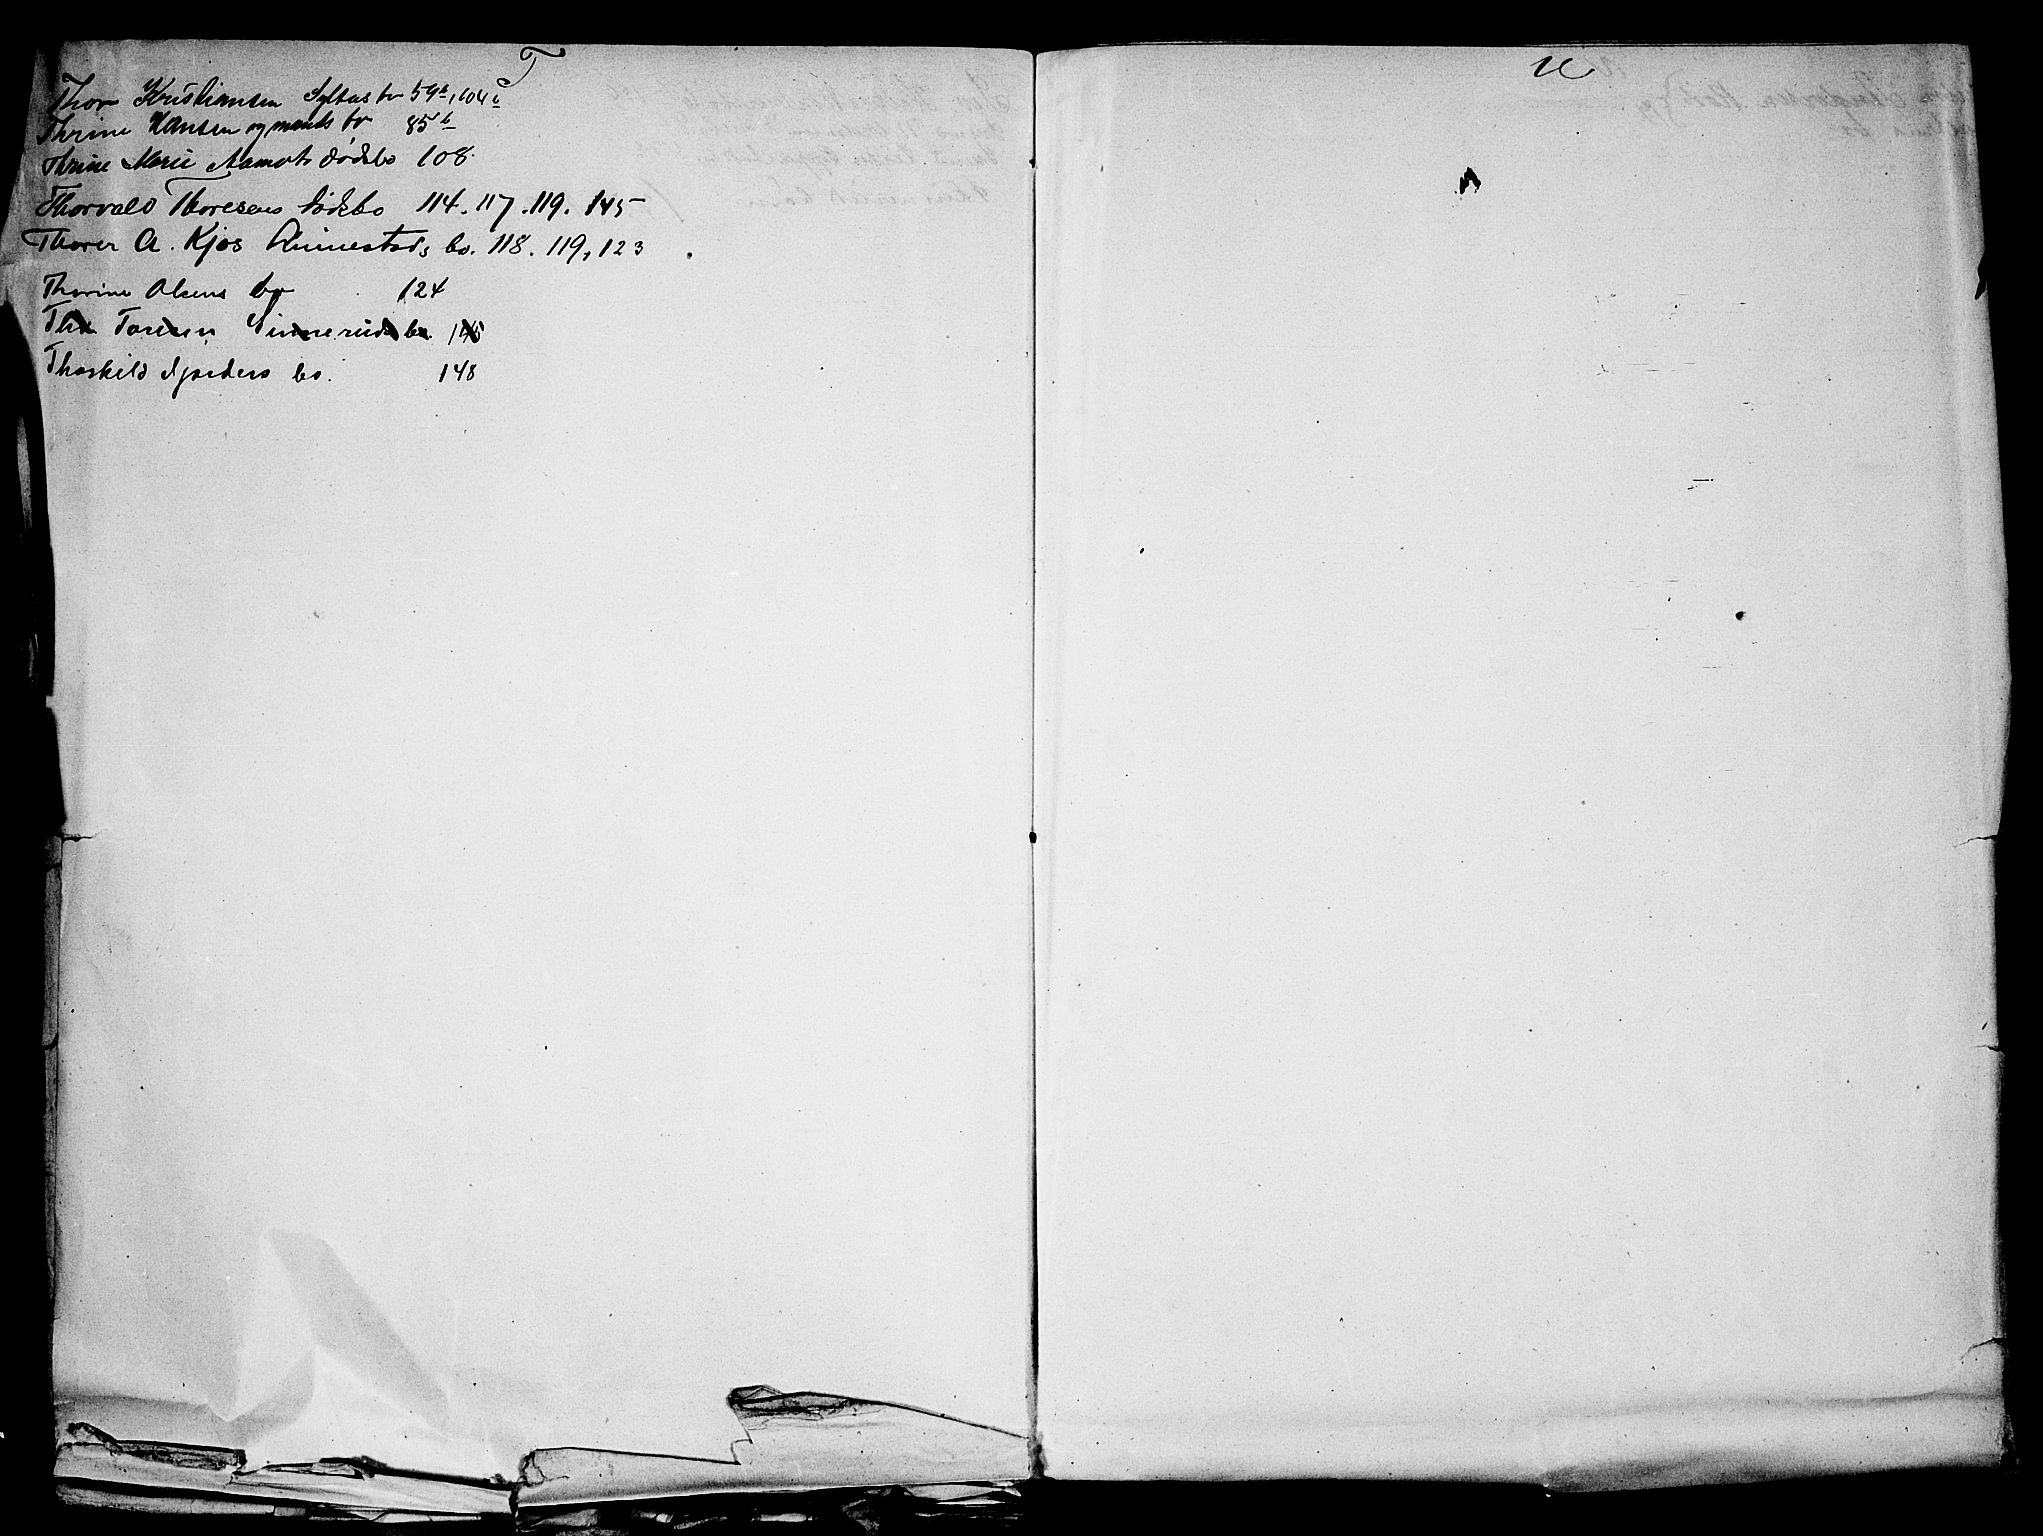 T
Thor Kristiansen Syltas bo 59b, 104
Thrine Hansen og mands bo 85b
Thrine Marie Aamots dødsbo 108.
Thorvald Thoresens dødsbo 114. 117. 119. 145
Thorer A. Kjos Annestads bo. 118. 119, 123
Thorine Olsens bo 124
Tansen Sinnerudes bo. 145
Thorkild Fjorders bo. 148
U